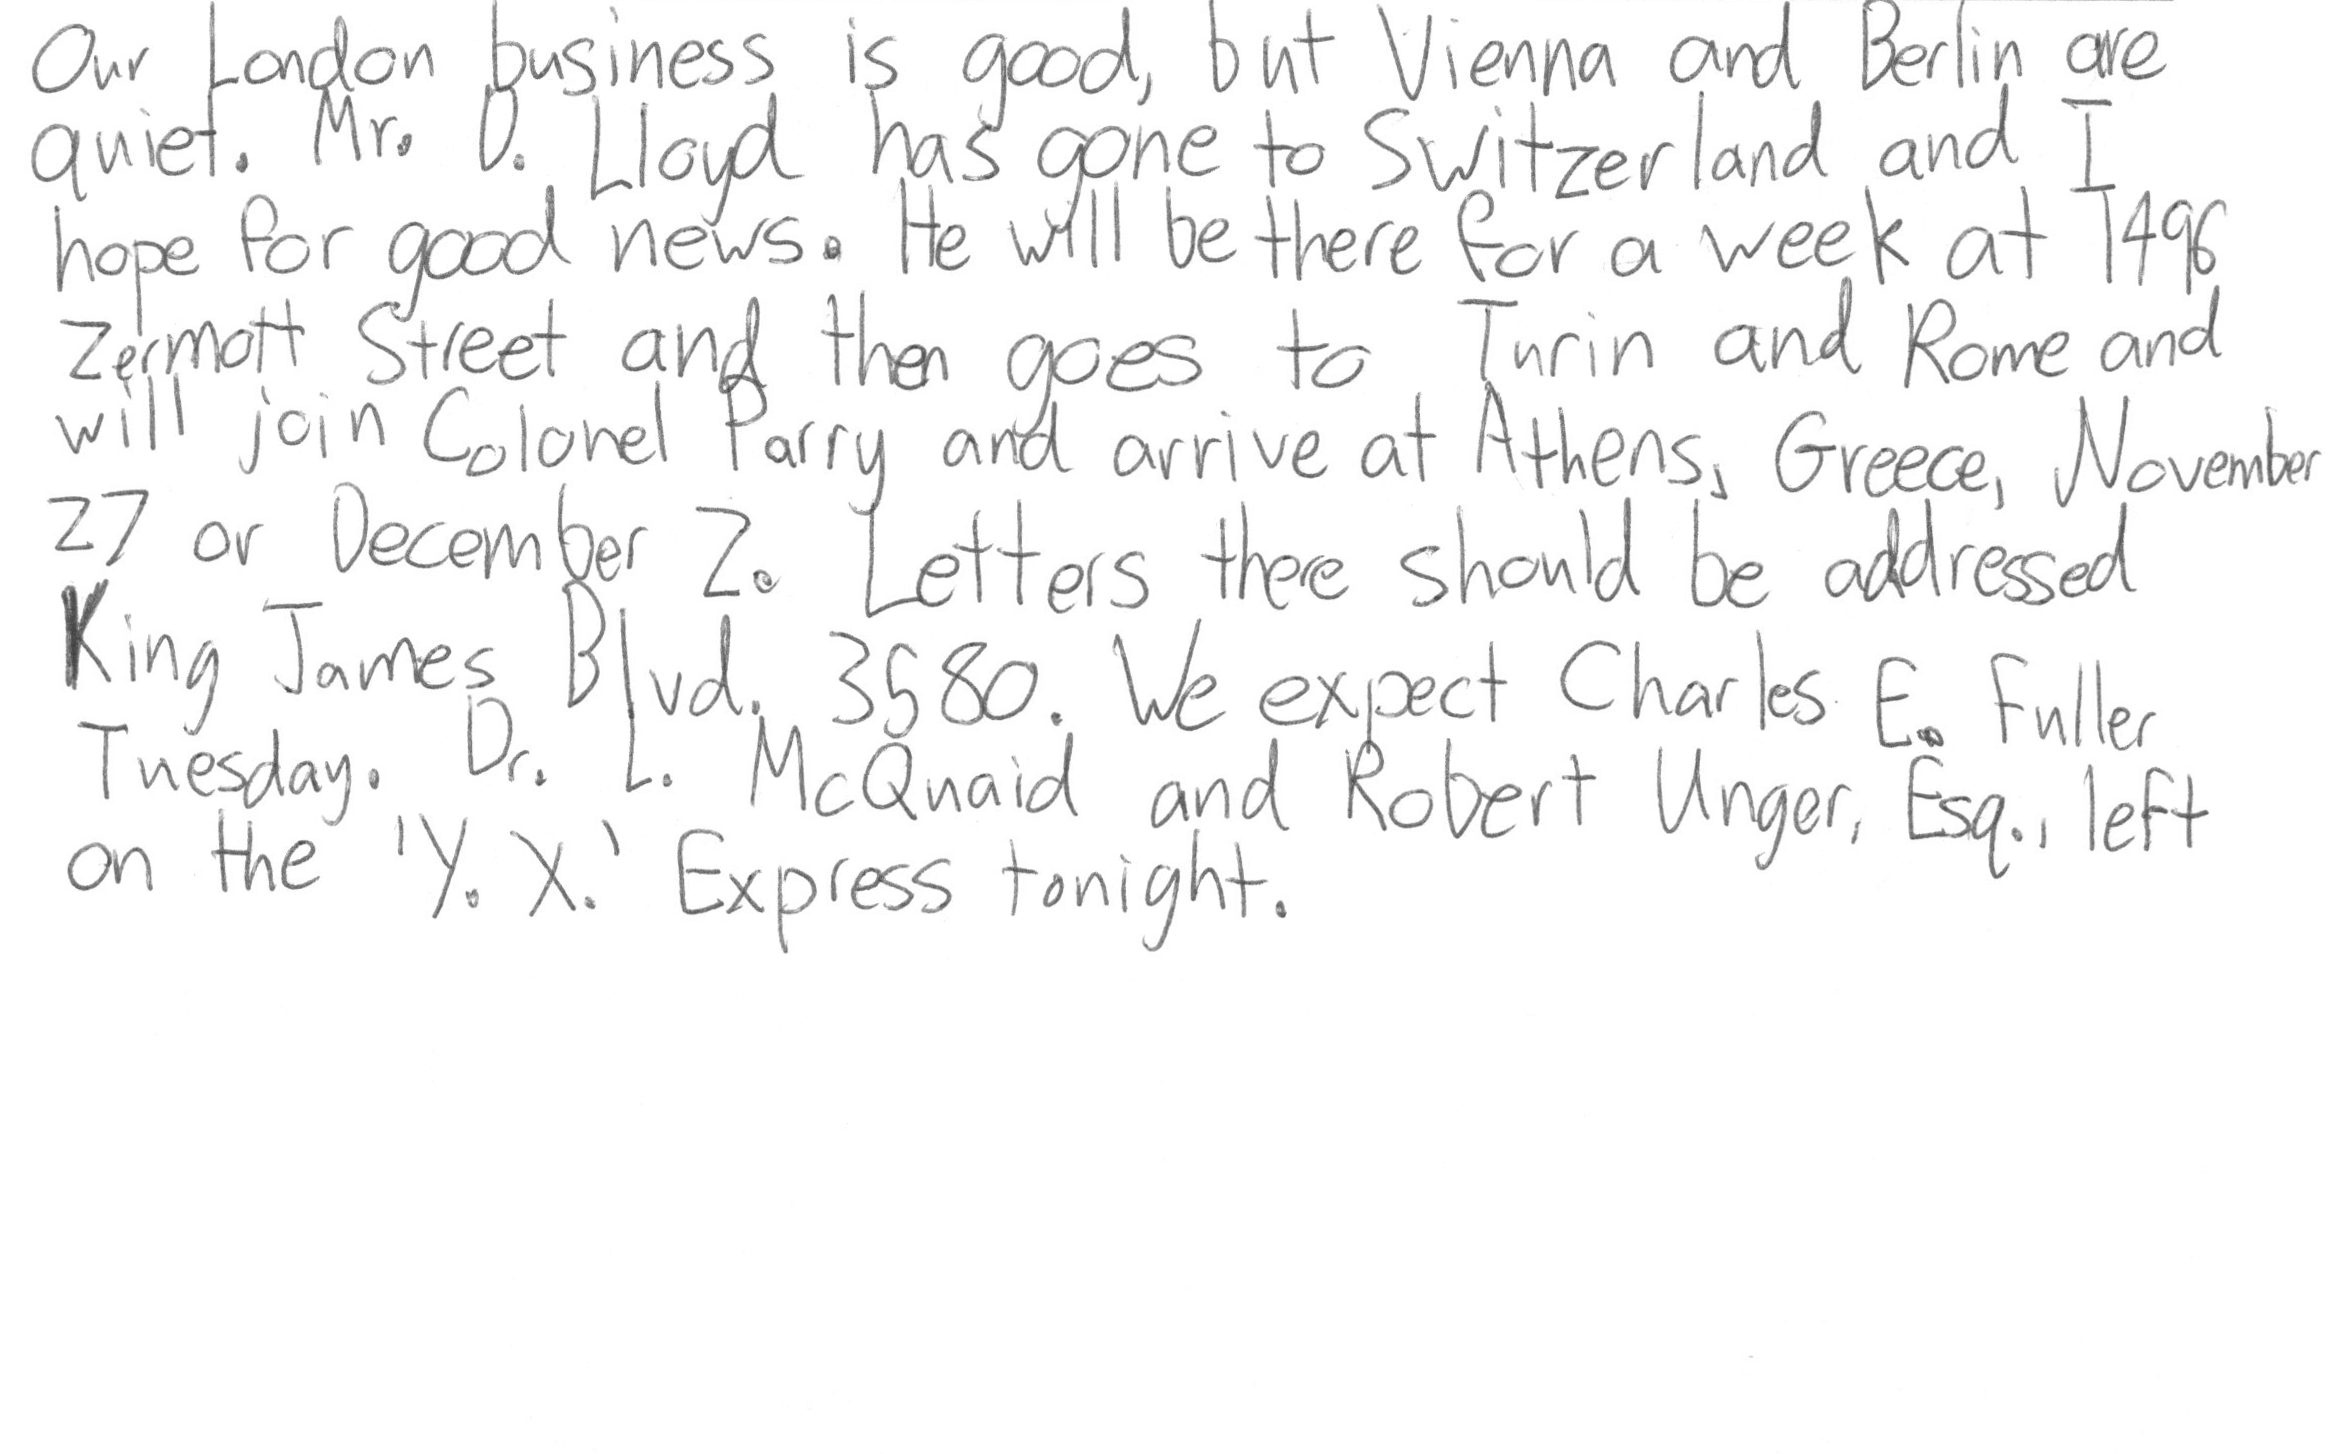 Our London business is good, but Vienna and Berlin are
quiet. Mr. D. Lloyd has gone to Switzerland and I
hope for good news. He will be there for a week at 1496
Zermott Street and then goes to Turin and Rome and
will join Colonel Parry and arrive at Athens, Greece, November
27 or December 2. Letters there should be addressed
King James Blvd. 3580. We expect Charles E. Fuller
Tuesday. Dr. L. McQuaid and Robert Unger, Esq., left
on the 'Y. X.' Express tonight.